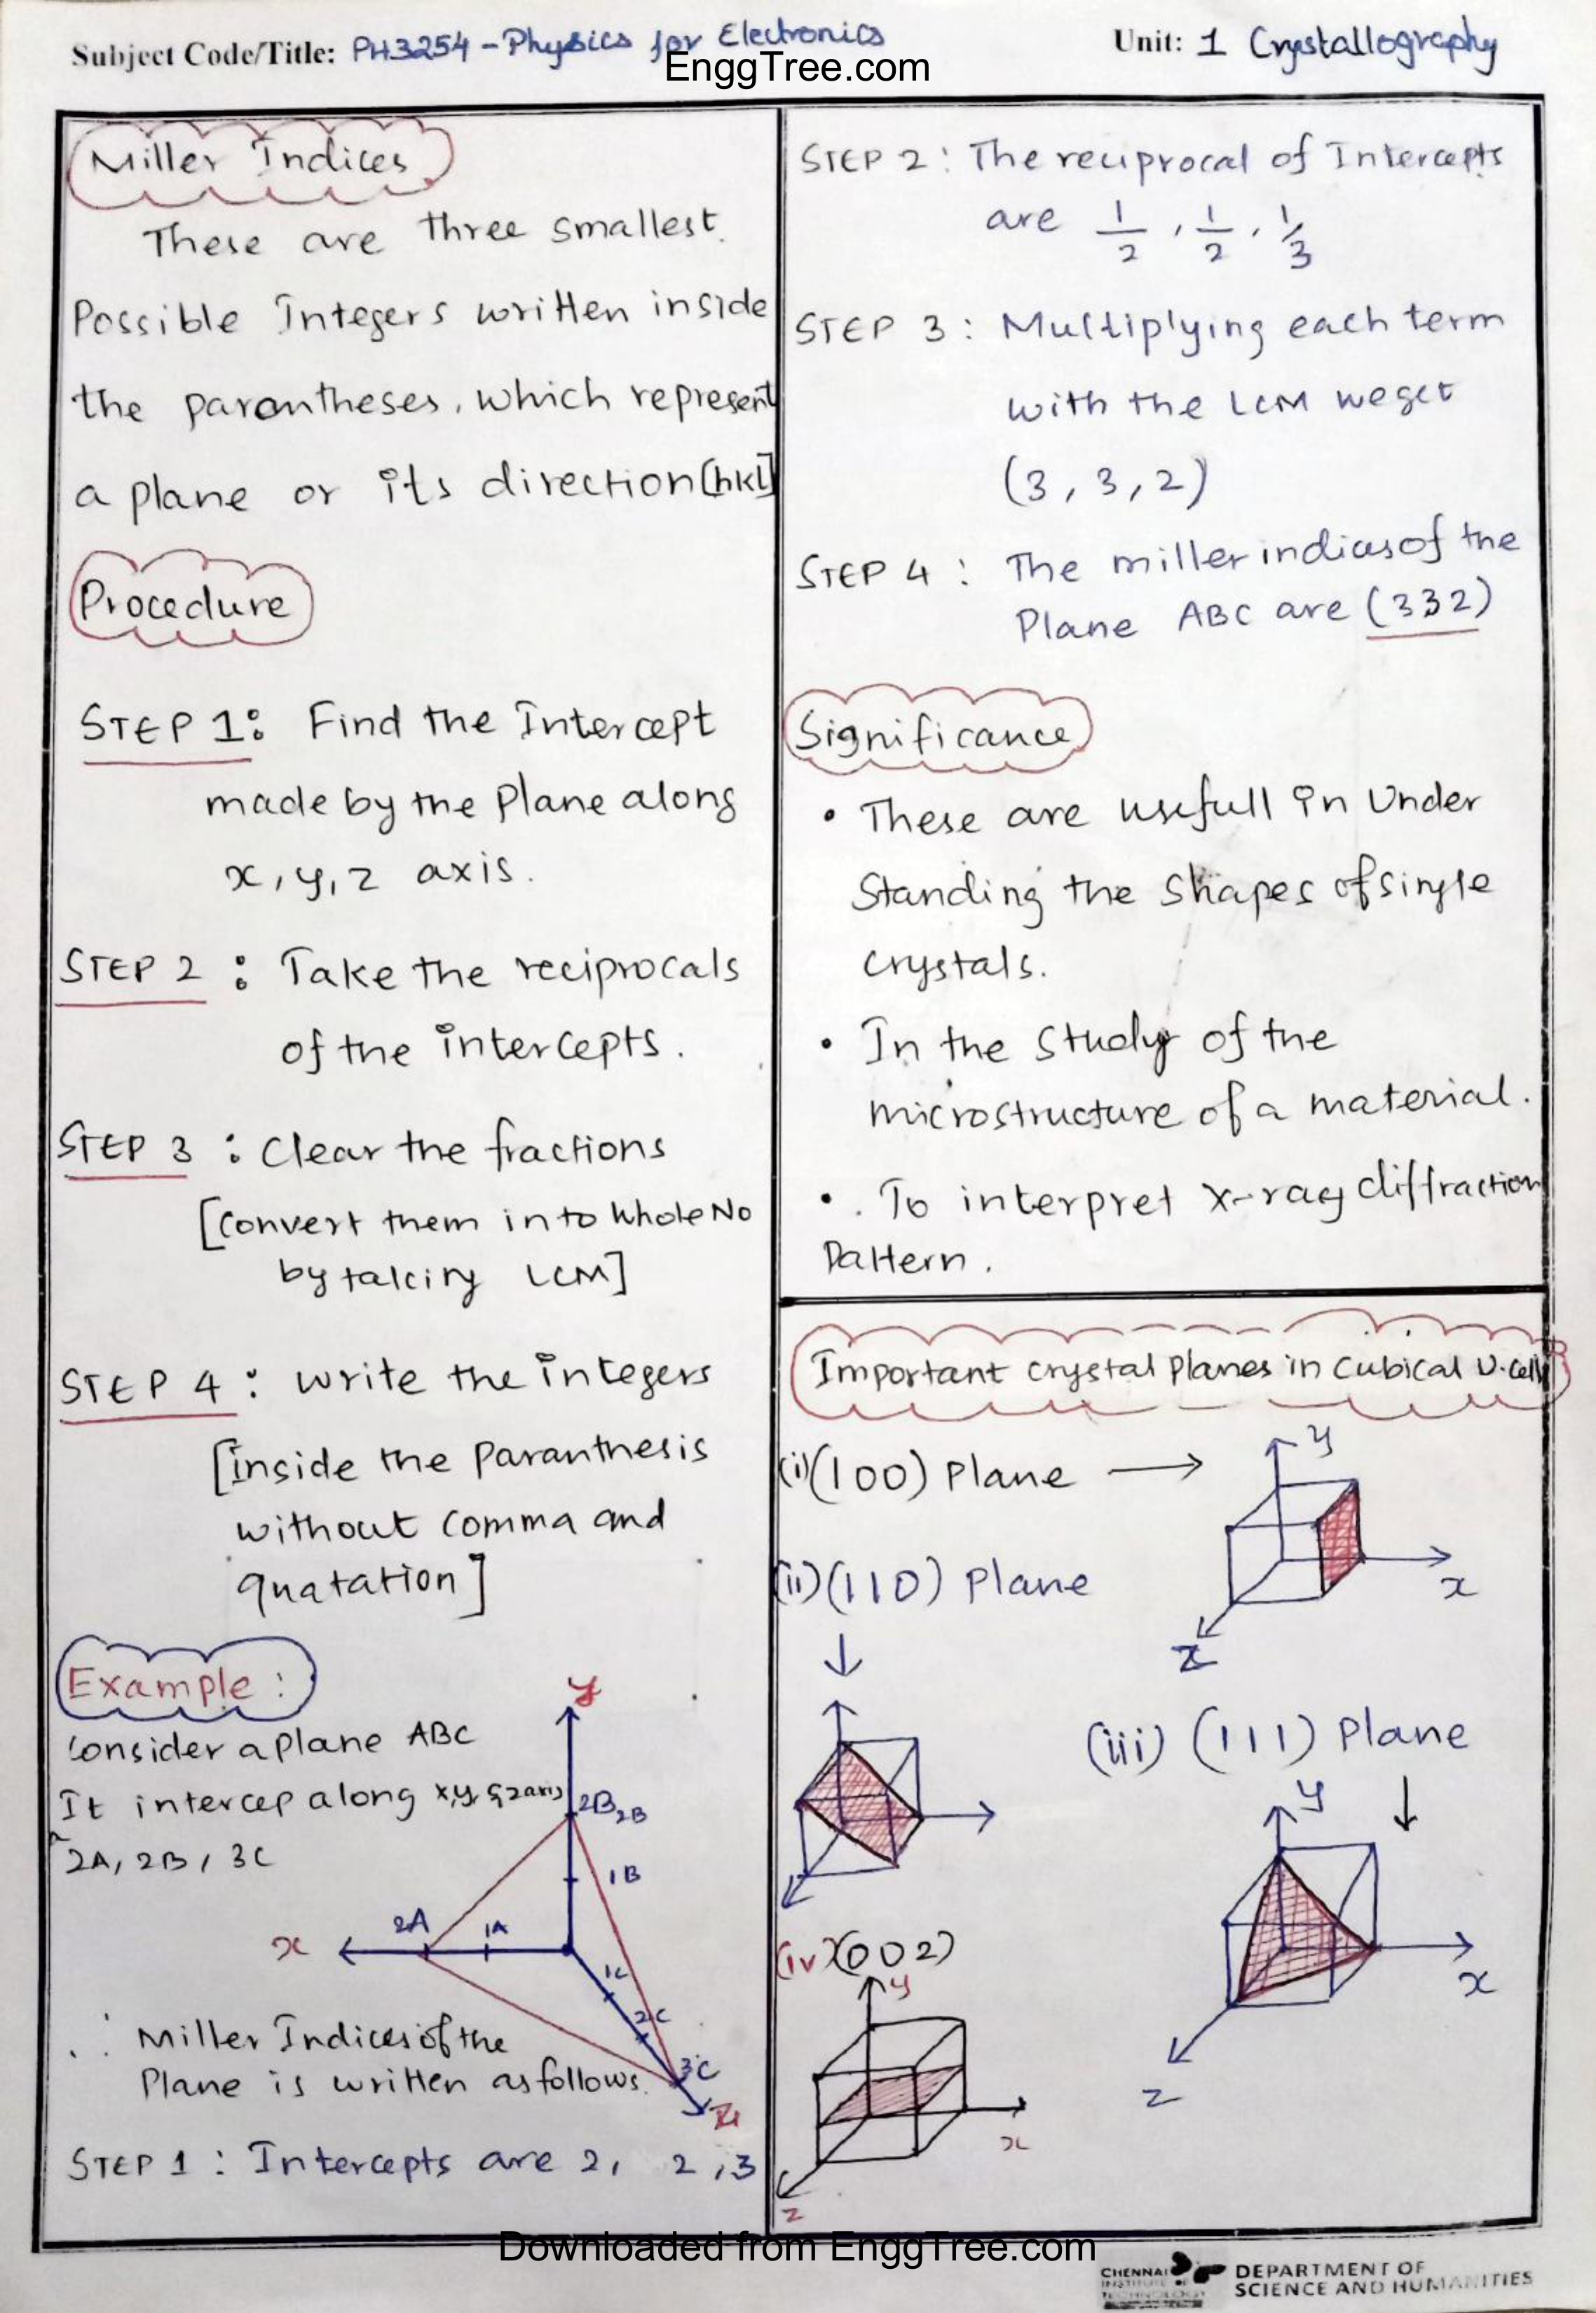 Subject Code/Title: PH3254 - Physics for Electronics
Unit: 1 Crystallography
EnggTree.com
Miller Indices
These are three smallest.
Possible Integers written inside
the parantheses, which represent
a plane or its direction [hkl]
Procedure
STEP 1: Find the Intercept
made by the Plane along
x, y, z axis.
STEP 2 : Take the reciprocals
of the intercepts.
STEP 3 : Clear the fractions
[Convert them into Whole No
by taking LCM]
STEP 4 : Write the integers
[inside the Paranthesis
without comma and
quatation]
Example :
Consider a plane ABC
It intercep along x,y, & z axis
2A, 2B, 3C
y
2B 2B
1B
2A
1A
x
1C
2C
3C
z
∴ Miller Indices of the
Plane is written as follows.
STEP 1 : Intercepts are 2, 2, 3
STEP 2 : The reciprocal of Intercepts
are 1/2, 1/2, 1/3
STEP 3 : Multiplying each term
with the LCM we get
(3, 3, 2)
STEP 4 : The miller indices of the
Plane ABC are (332)
Significance
• These are usefull in Under
Standing the Shapes of single
crystals.
• In the Study of the
microstructure of a material.
• . To interpret x-ray diffraction
Pattern.
Important crystal planes in Cubical U.Cells
(i) (100) Plane →
y
x
z
(ii) (110) Plane
↓
(iii) (111) Plane
↓
y
x
z
(iv) (002)
y
x
z
Downloaded from EnggTree.com
CHENNAI
INSTITUTE OF
TECHNOLOGY
DEPARTMENT OF
SCIENCE AND HUMANITIES